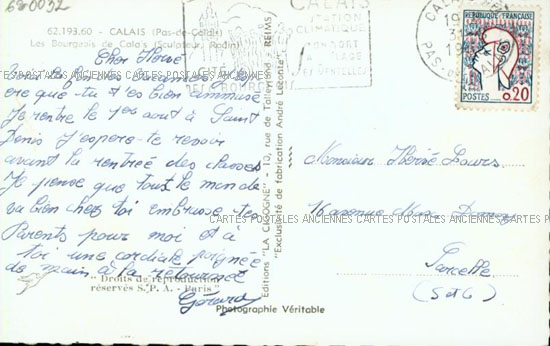 68-0032
62.193.60 - CALAIS (Pas-de-Calais)
Les Bourgeois de Calais (Sculpteur, Rodin)
Cher Hervé
ère que tu t'es bien amusé
Je rentre le 1er aout à Saint
Denis J'espère te revoir
avant la rentrée des classes
Je pense que tout le monde
va bien chez toi embrasse tes
Parents pour moi et à
toi une cordiale poignée
de main à la retourne
Gérard
"Droits de reproduction
réservés S.P.A. - Paris"
Photographie Véritable
Editions "LA CIGOGNE" - 10, rue de Talleyrand - REIMS
"Exclusivité de fabrication André Leconte"
CALAIS
STATION
CLIMATIQUE
SON PORT
SA PLAGE
SES DENTELLES
CITÉ
DES BOURGEOIS
CALAIS
PAS-DE-CALAIS
REPUBLIQUE FRANÇAISE
POSTES
0,20
Monsieur Hervé
16 avenue
Sarcelle
(S et O)
CARTES POSTALES ANCIENNES CARTES POSTALES ANCIENNES CARTES POSTALES ANCIENNES CARTES POSTALES ANCIENNES
CARTES POSTALES ANCIENNES CARTES POSTALES ANCIENNES